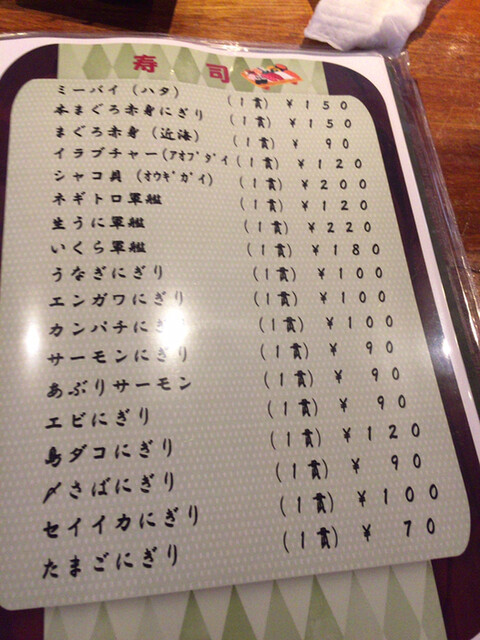 寿司
ミーバイ (ハタ) (1貫) ¥150
本まぐろ赤身にぎり (1貫) ¥150
まぐろ赤身 (近海) (1貫) ¥ 90
イラブチャー(アオブダイ (1貫) ¥120
シャコ貝 (オウギガイ) (1貫) ¥200
ネギトロ軍艦 (1貫) ¥120
生うに軍艦 (1貫) ¥220
いくら軍艦 (1貫) ¥180
うなぎにぎり (1貫) ¥100
エンガワにぎり (1貫) ¥100
カンパチにぎり (1貫) ¥100
サーモンにぎり (1貫) ¥ 90
あぶりサーモン (1貫) ¥ 90
エビにぎり (1貫) ¥ 90
島ダコにぎり (1貫) ¥120
〆さばにぎり (1貫) ¥ 90
セイイカにぎり (1貫) ¥100
たまごにぎり (1貫) ¥ 70